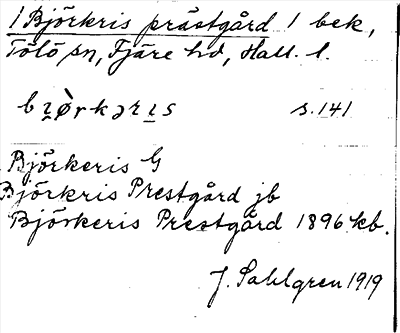 1 Björkris prästgård 1 bek,
Tölö sn, Fjäre hd, Hall. l.
bɩ̯ørkəris s. 141
Björkeris G
Björkris Prestgård jb
Björkeris Prestgård 1896 kb.
J. Sahlgren 1919